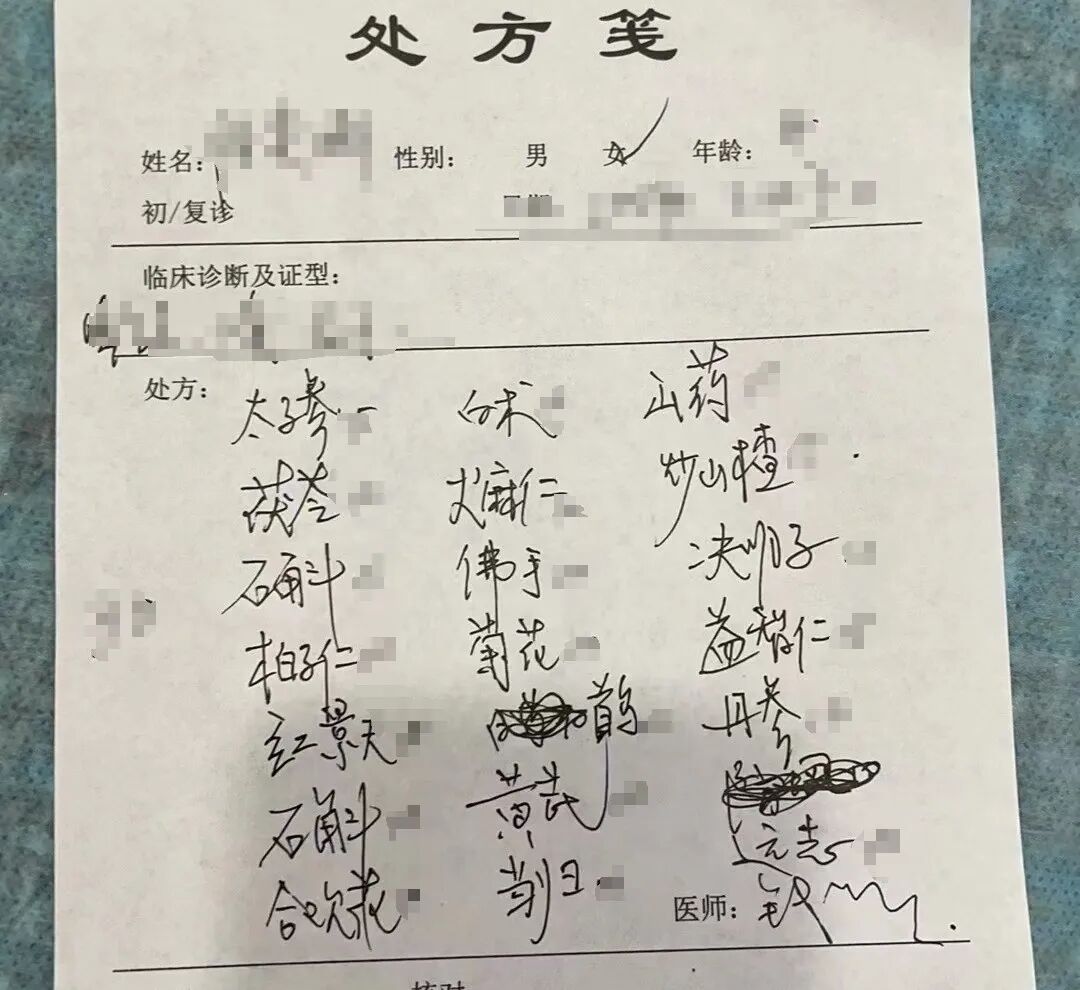 处方笺
姓名： 性别： 男 女 年龄：
初/复诊 日期
临床诊断及证型：
处方：
太子参 白术 山药
茯苓 火麻仁 炒山楂
石斛 佛手 决明子
柏子仁 菊花 益智仁
红景天 丹参
石斛 黄芪
合欢花 远志
医师：
核对